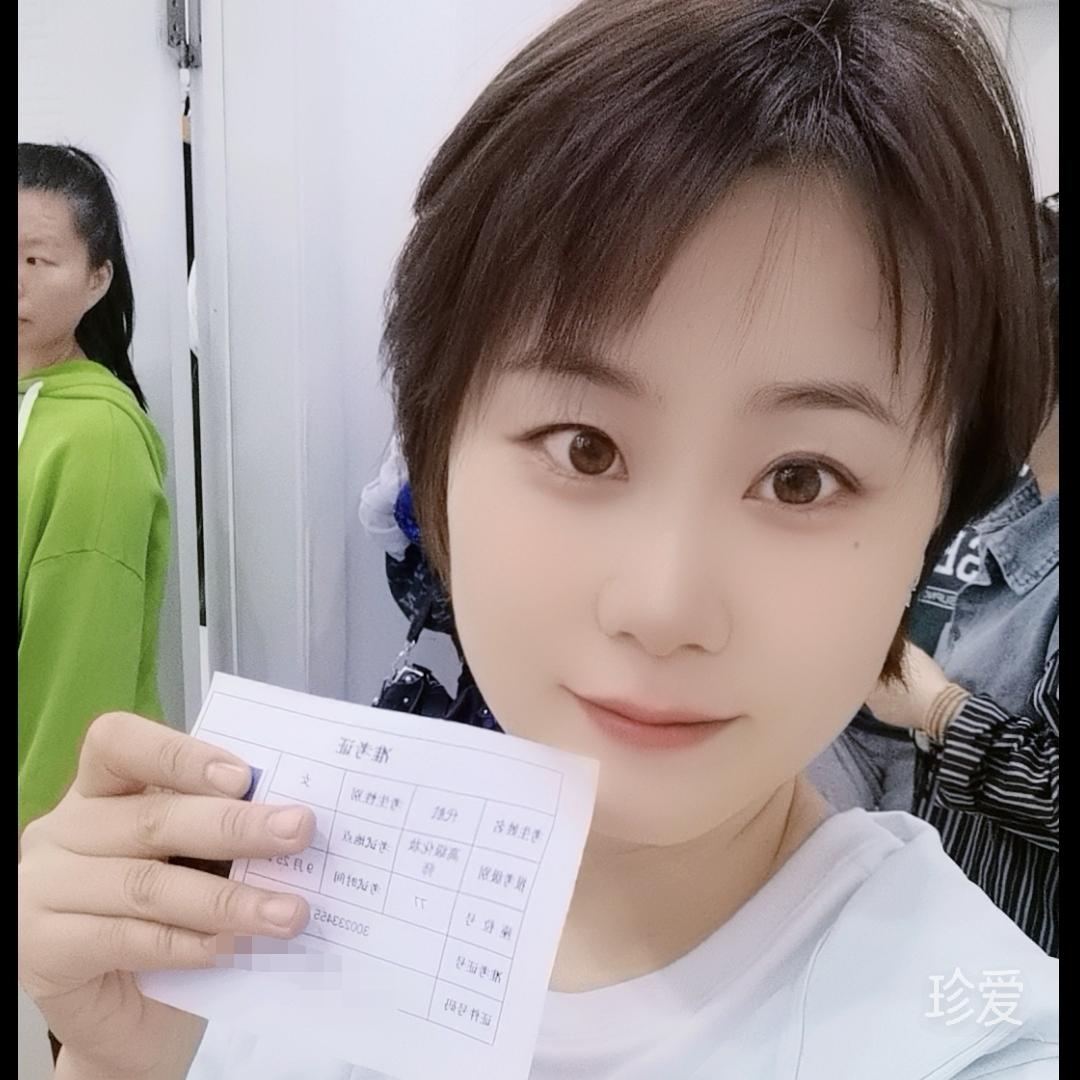 准考证
考生姓名 代凯 考生性别 女
报考级别 高级化妆师 考试地点
座位号 77 考试时间 9月25
准考证号 300233455
证件号码
珍爱